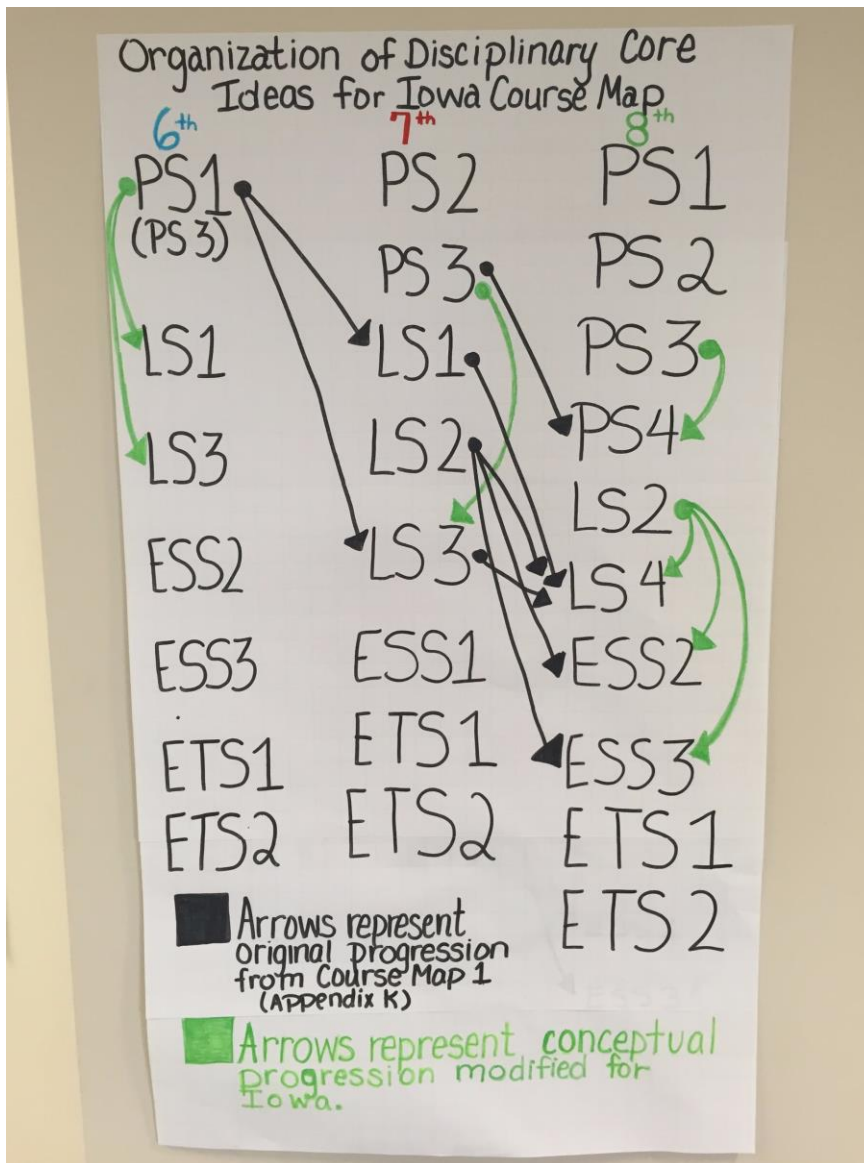 Organization of Disciplinary Core
Ideas for Iowa Course Map
6th
PS1
(PS3)
LS1
LS3
ESS2
ESS3
ETS1
ETS2
7th
PS2
PS3
LS1
LS2
LS3
ESS1
ETS1
ETS2
8th
PS1
PS2
PS3
PS4
LS2
LS4
ESS2
ESS3
ETS1
ETS2
Arrows represent
original progression
from Course Map 1
(Appendix K)
Arrows represent conceptual
progression modified for
Iowa.